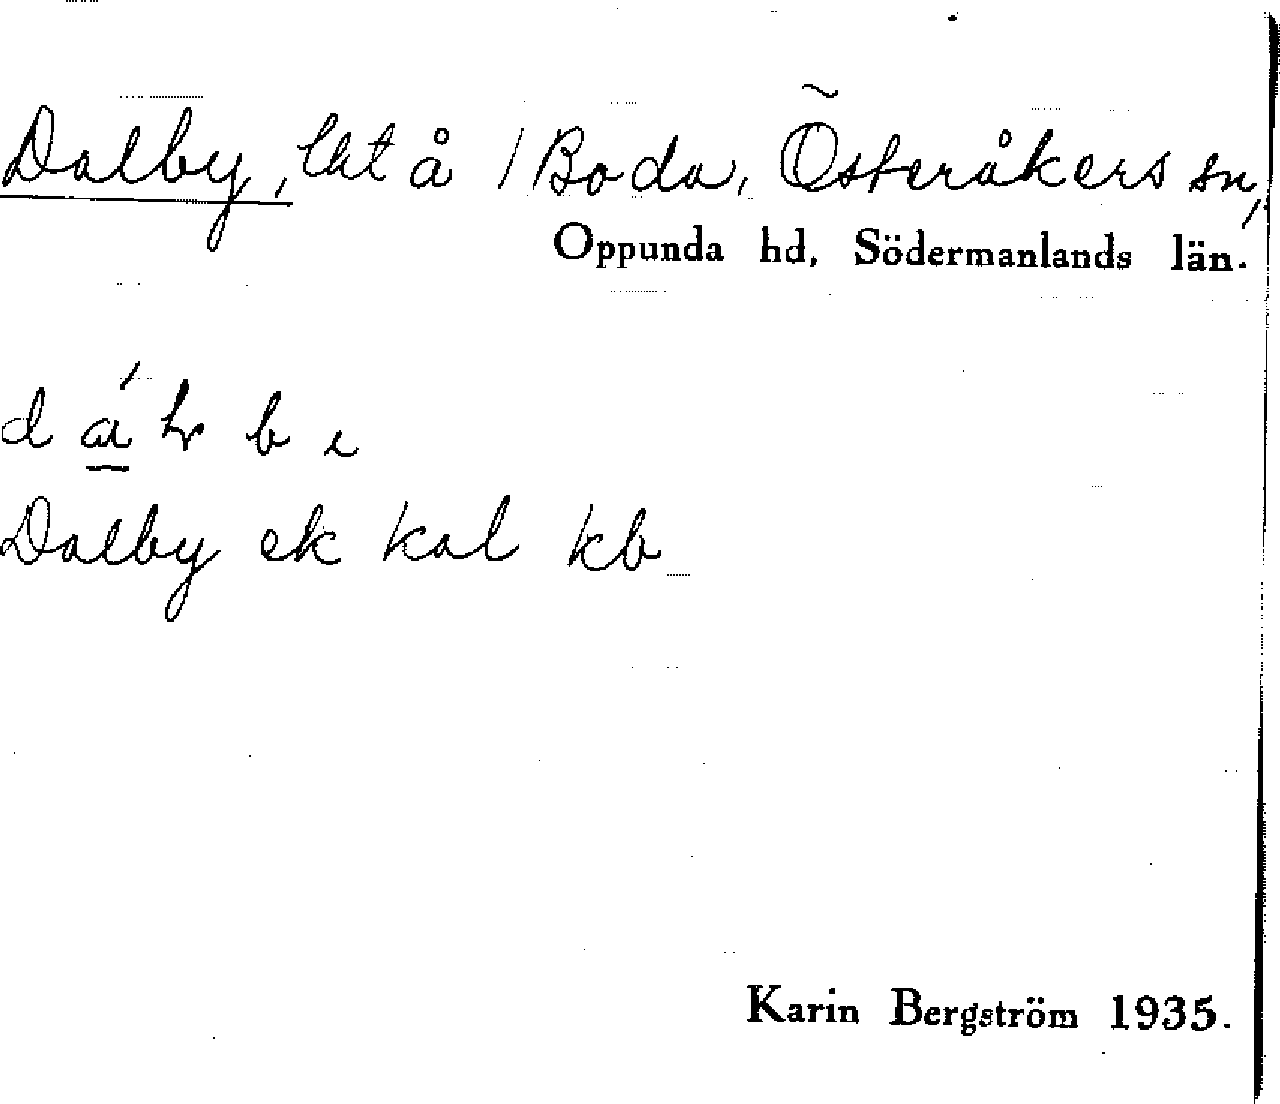 Dalby, lht å 1 Boda, Österåkers sn,
Oppunda hd, Södermanlands län.
Dalby ek kal kb
Karin Bergström 1935.